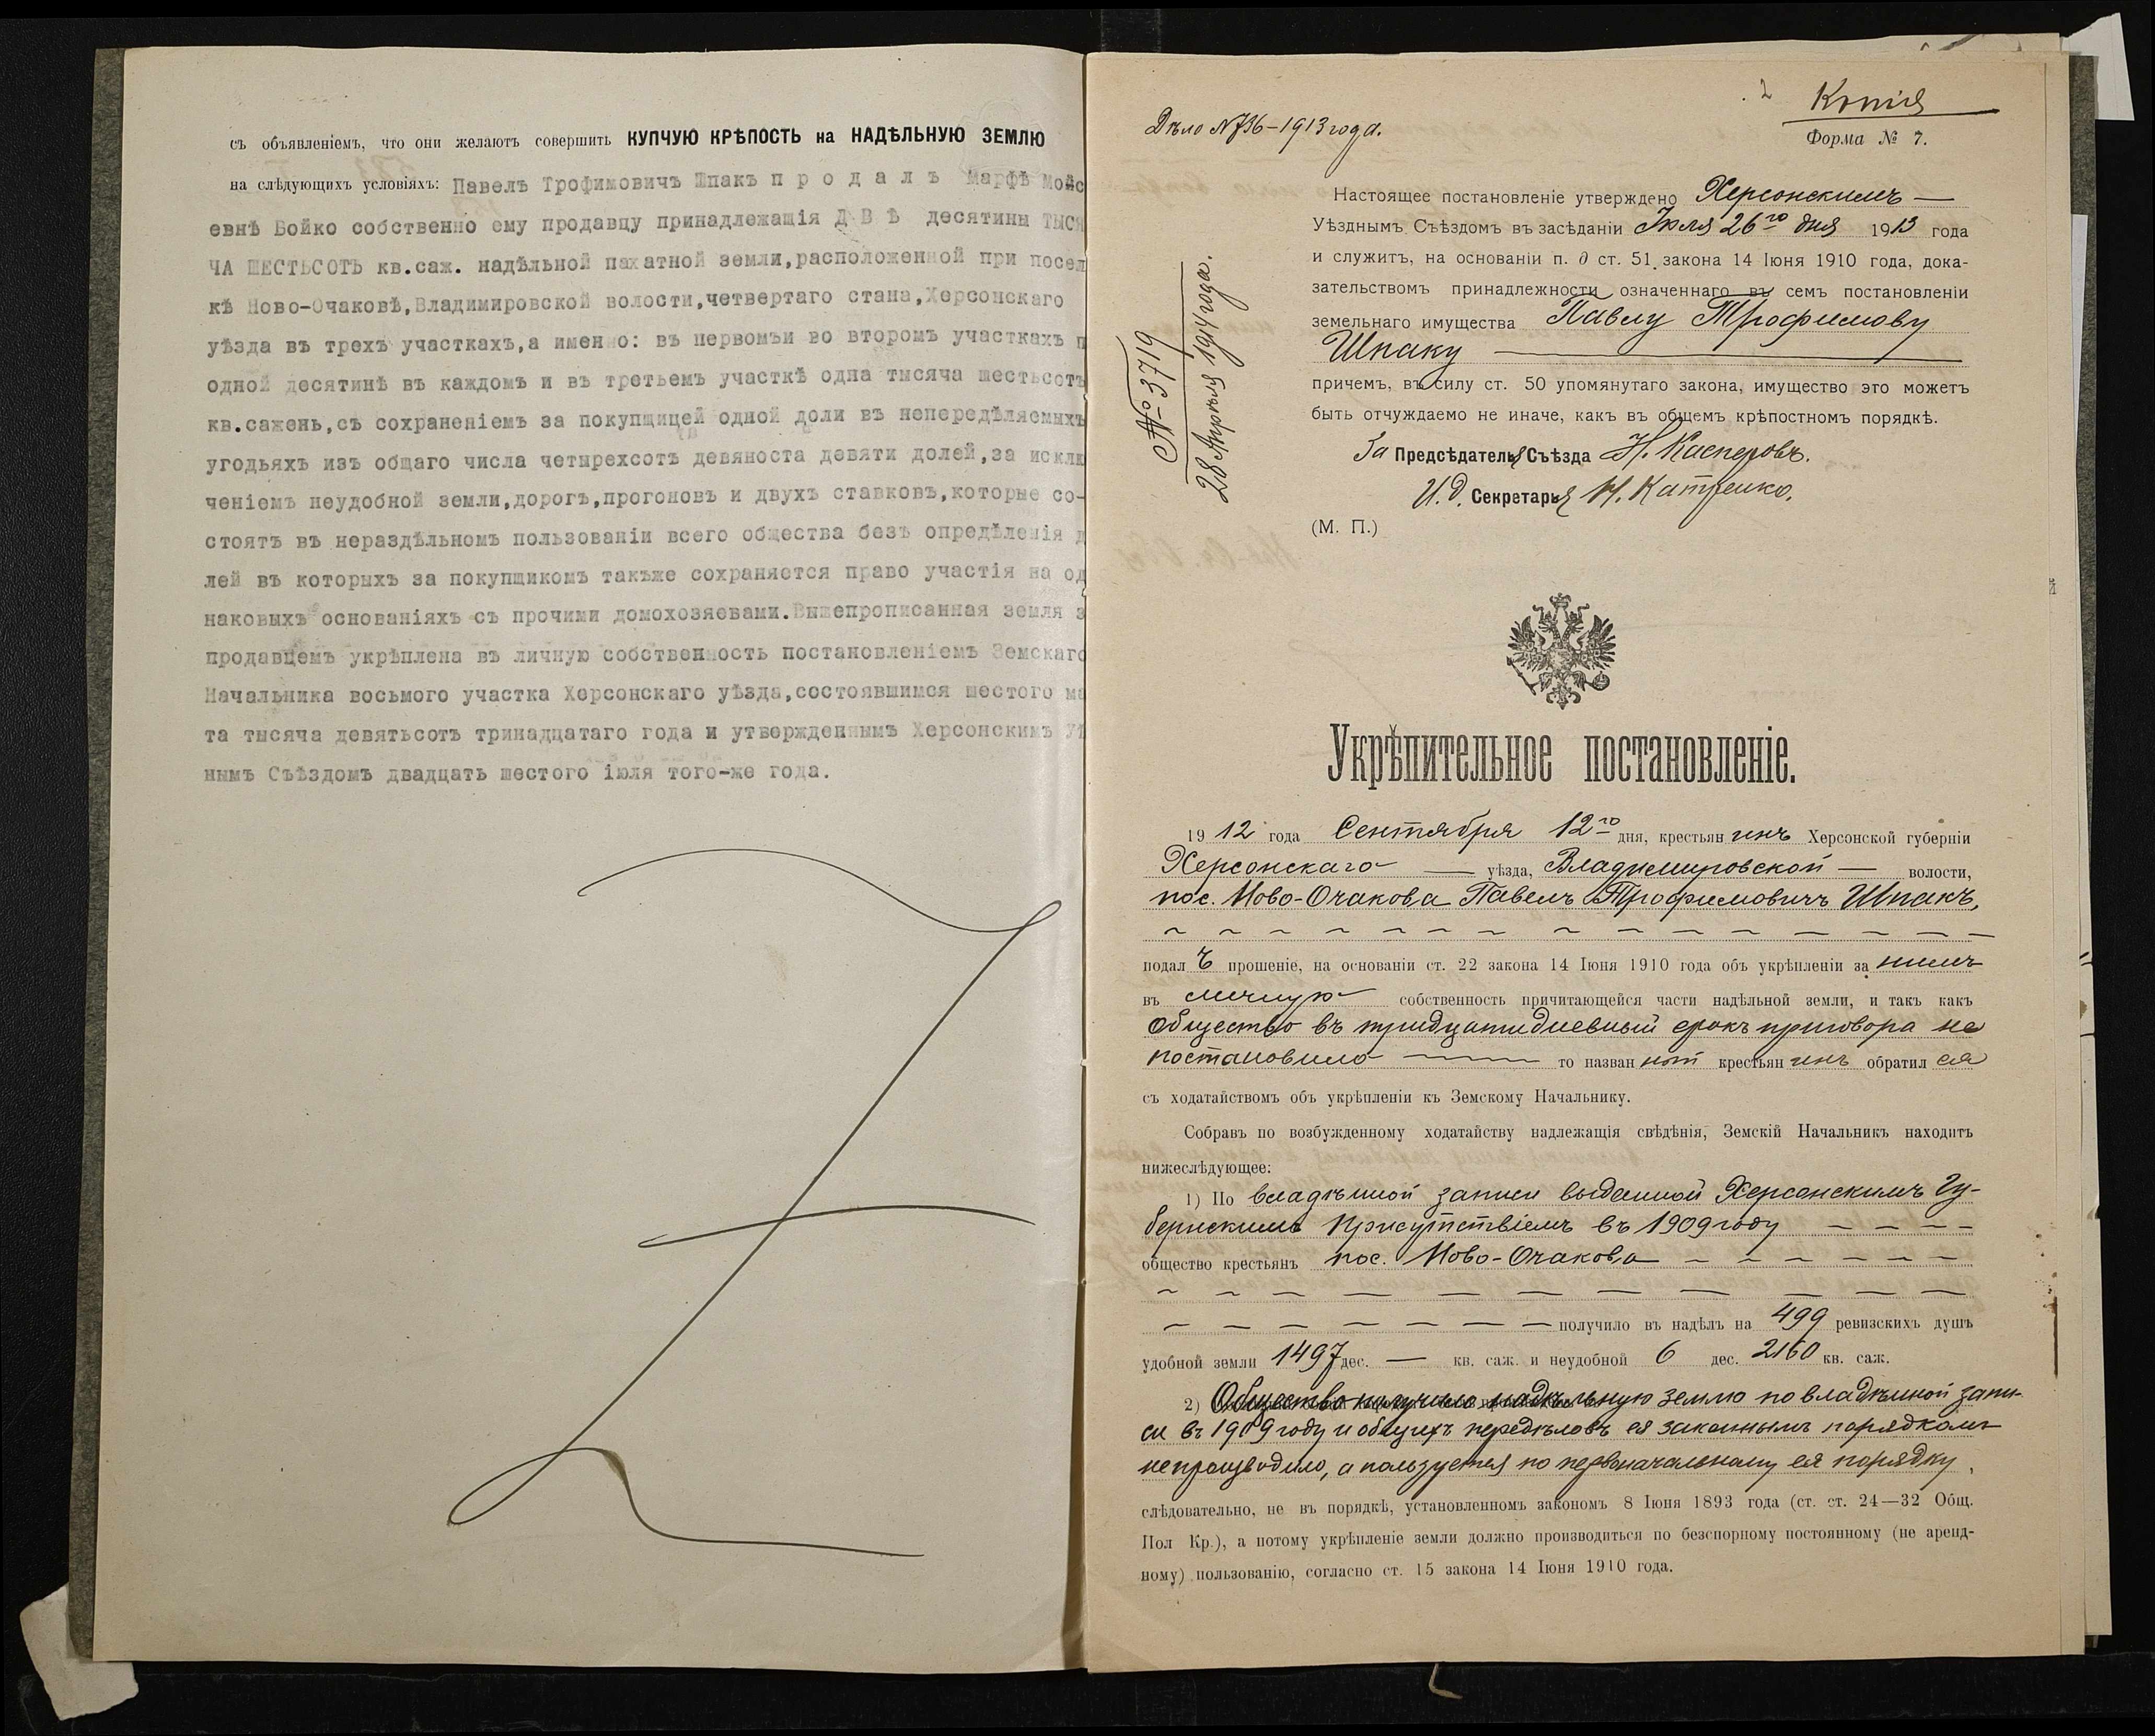 съ объявленіемъ, что они желаютъ совершить КУПЧУЮ КРѢПОСТЬ на НАДѢЛЬНУЮ ЗЕМЛЮ
на слѣдующихъ условіяхъ: Павелъ Трофимовичъ Шпакъ п р о д а л ъ Марфѣ Мойс
евнѣ Бойко собственно ему продавцу принадлежащія Д В Ѣ десятины ТЫСЯ
ЧА ШЕСТЬСОТЪ кв.саж. надѣльной пахатной земли,расположенной при посел
кѣ Ново-Очаковѣ,Владимировской волости,четвертаго стана,Херсонскаго
уѣзда въ трехъ участкахъ,а именно: въ первомъи во второмъ участкахъ п
одной десятинѣ въ каждомъ и въ третьемъ участкѣ одна тысяча шестьсотъ
кв.сажень,съ сохраненіемъ за покупщицей одной доли въ непередѣляемыхъ
угодьяхъ изъ общаго числа четырехсотъ девяноста девяти долей,за исклю
ченіемъ неудобной земли,дорогъ,прогоновъ и двухъ ставковъ,которые со-
стоятъ въ нераздѣльномъ пользованіи всего общества безъ опредѣленія д
лей въ которыхъ за покупщикомъ такъже сохраняется право участія на од
наковыхъ основаніяхъ съ прочими домохозяевами.Вышепрописанная земля з
продавцемъ укрѣплена въ личную собственность постановленіемъ Земскаго
Начальника восьмого участка Херсонскаго уѣзда,состоявшимся шестого ма
та тысяча девятьсотъ тринадцатаго года и утвержденнымъ Херсонскимъ Уѣ
нымъ Съѣздомъ двадцать шестого іюля того-же года.
2 Копія
Дѣло № 736-1913 года.
Форма № 7.
№ 3719
28 Апрѣля 1914 года.
Настоящее постановленіе утверждено Херсонскимъ —
Уѣзднымъ Съѣздомъ въ засѣданіи Іюля 26го дня 1913 года
и служитъ, на основаніи п. д ст. 51 закона 14 Іюня 1910 года, дока-
зательствомъ принадлежности означеннаго въ семъ постановленіи
земельнаго имущества Павлу Трофимову
Шпаку —
причемъ, въ силу ст. 50 упомянутаго закона, имущество это можетъ
быть отчуждаемо не иначе, какъ въ общемъ крѣпостномъ порядкѣ.
За Предсѣдателя Съѣзда Н. Касперовъ.
И.д. Секретаря Н. Катренко.
(М. П.)
Укрѣпительное постановленіе.
1912 года Сентября 12го дня, крестьянинъ Херсонской губерніи
Херсонскаго — уѣзда, Владимировской — волости,
пос. Ново-Очакова Павелъ Трофимовичъ Шпакъ,
подалъ прошеніе, на основаніи ст. 22 закона 14 Іюня 1910 года объ укрѣпленіи за нимъ
въ личную собственность причитающейся части надѣльной земли, и такъ какъ
общество въ тридцатидневный срокъ приговора не
постановило — то названный крестьянинъ обратился
съ ходатайствомъ объ укрѣпленіи къ Земскому Начальнику.
Собравъ по возбужденному ходатайству надлежащія свѣдѣнія, Земскій Начальникъ находитъ
нижеслѣдующее:
1) По владѣнной записи выданной Херсонскимъ Гу-
бернскимъ Присутствіемъ въ 1909 году — — — —
общество крестьянъ пос. Ново-Очакова — — — — — —
— — — — — — — получило въ надѣлъ на 499 ревизскихъ душъ
удобной земли 1497 дес. — кв. саж. и неудобной 6 дес. 2160 кв. саж.
2) Общество получило надѣльную землю по владѣнной запи-
си въ 1909 году и общихъ передѣловъ ея законнымъ порядкомъ
не производило, а пользуется по первоначальному ея порядку,
слѣдовательно, не въ порядкѣ, установленномъ закономъ 8 Іюня 1893 года (ст. ст. 24—32 Общ.
Пол Кр.), а потому укрѣпленіе земли должно производиться по безспорному постоянному (не аренд-
ному) пользованію, согласно ст. 15 закона 14 Іюня 1910 года.